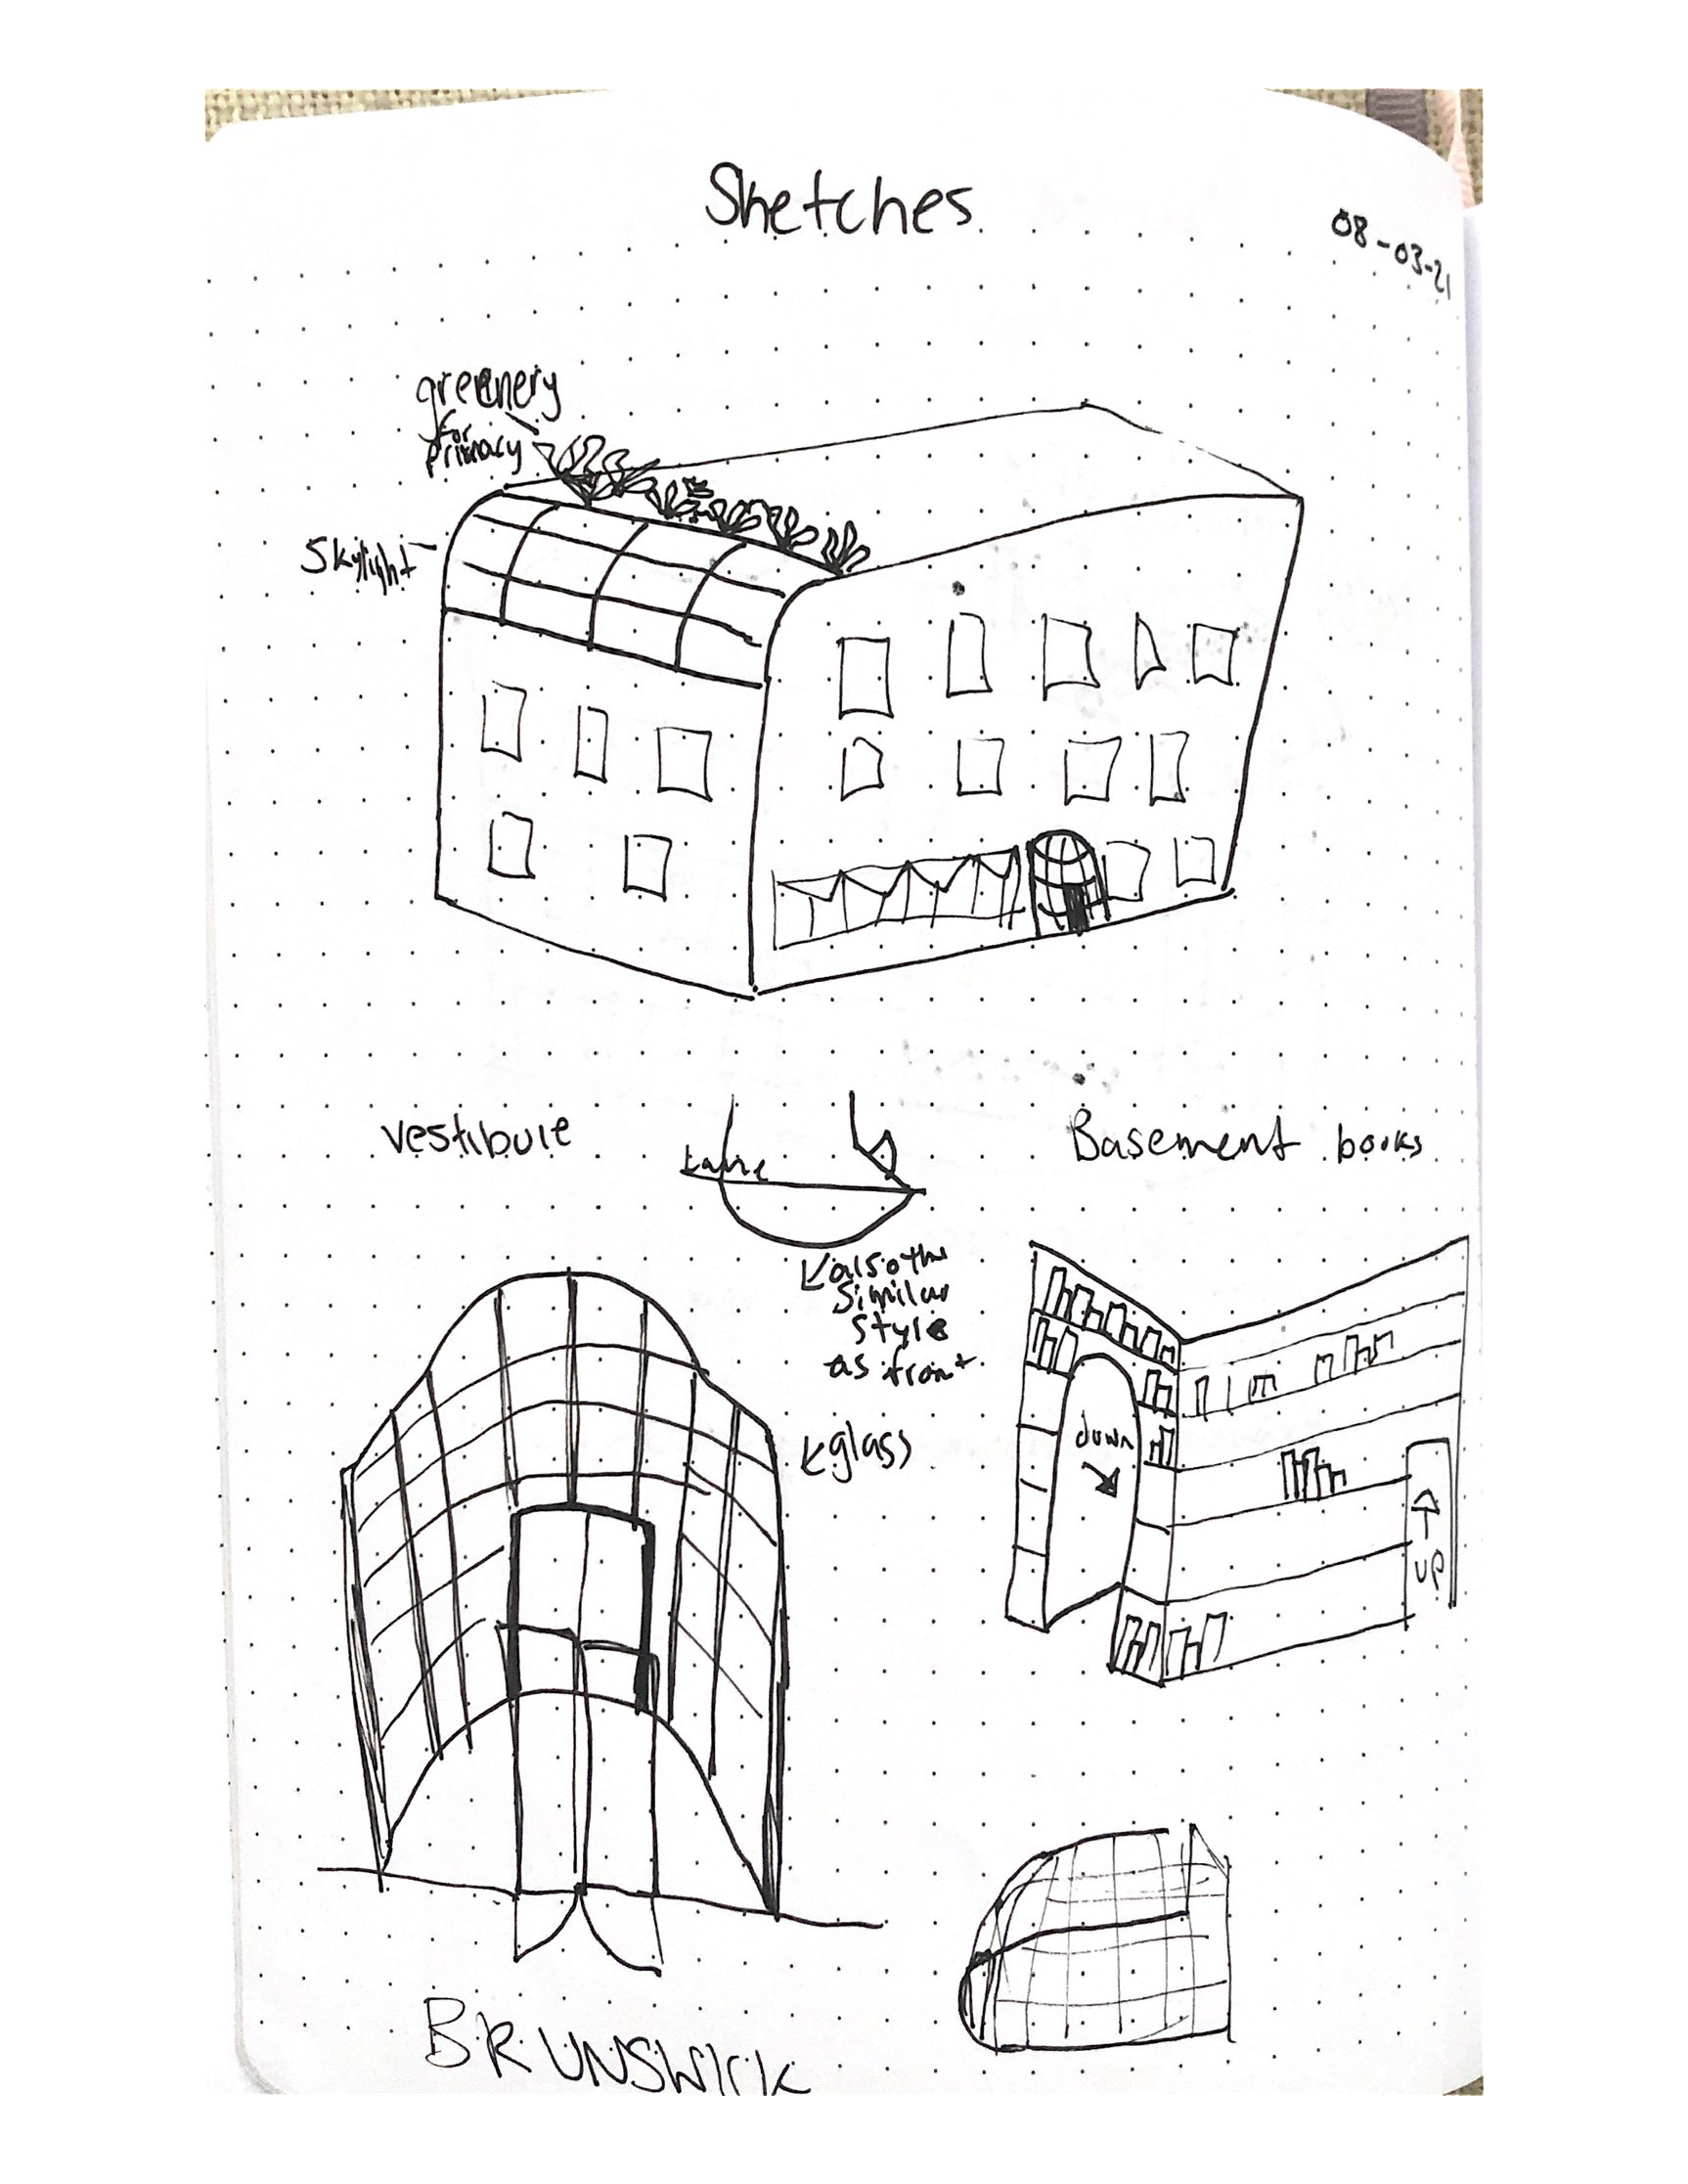 Sketches
08-03-21
greenery
for
privacy
Skylight
vestibule
Basement books
also
similar
style
as front
glass
down
UP
BRUNSWICK